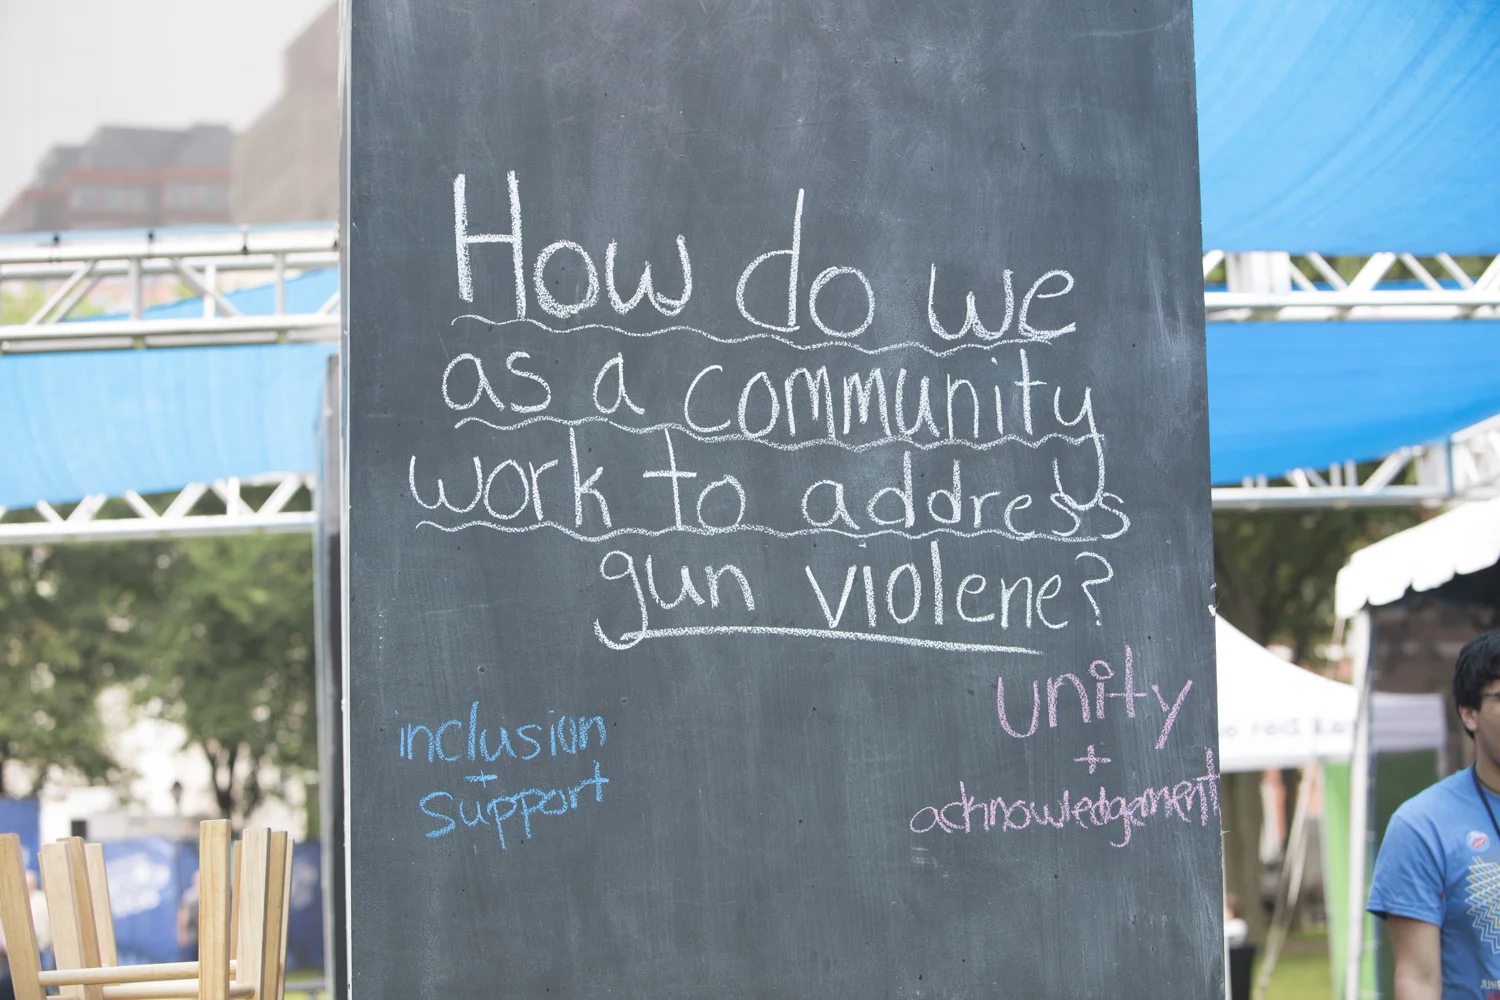 How do we
as a community
work to address
gun violene?
inclusion
+
support
unity
+
acknowledgement